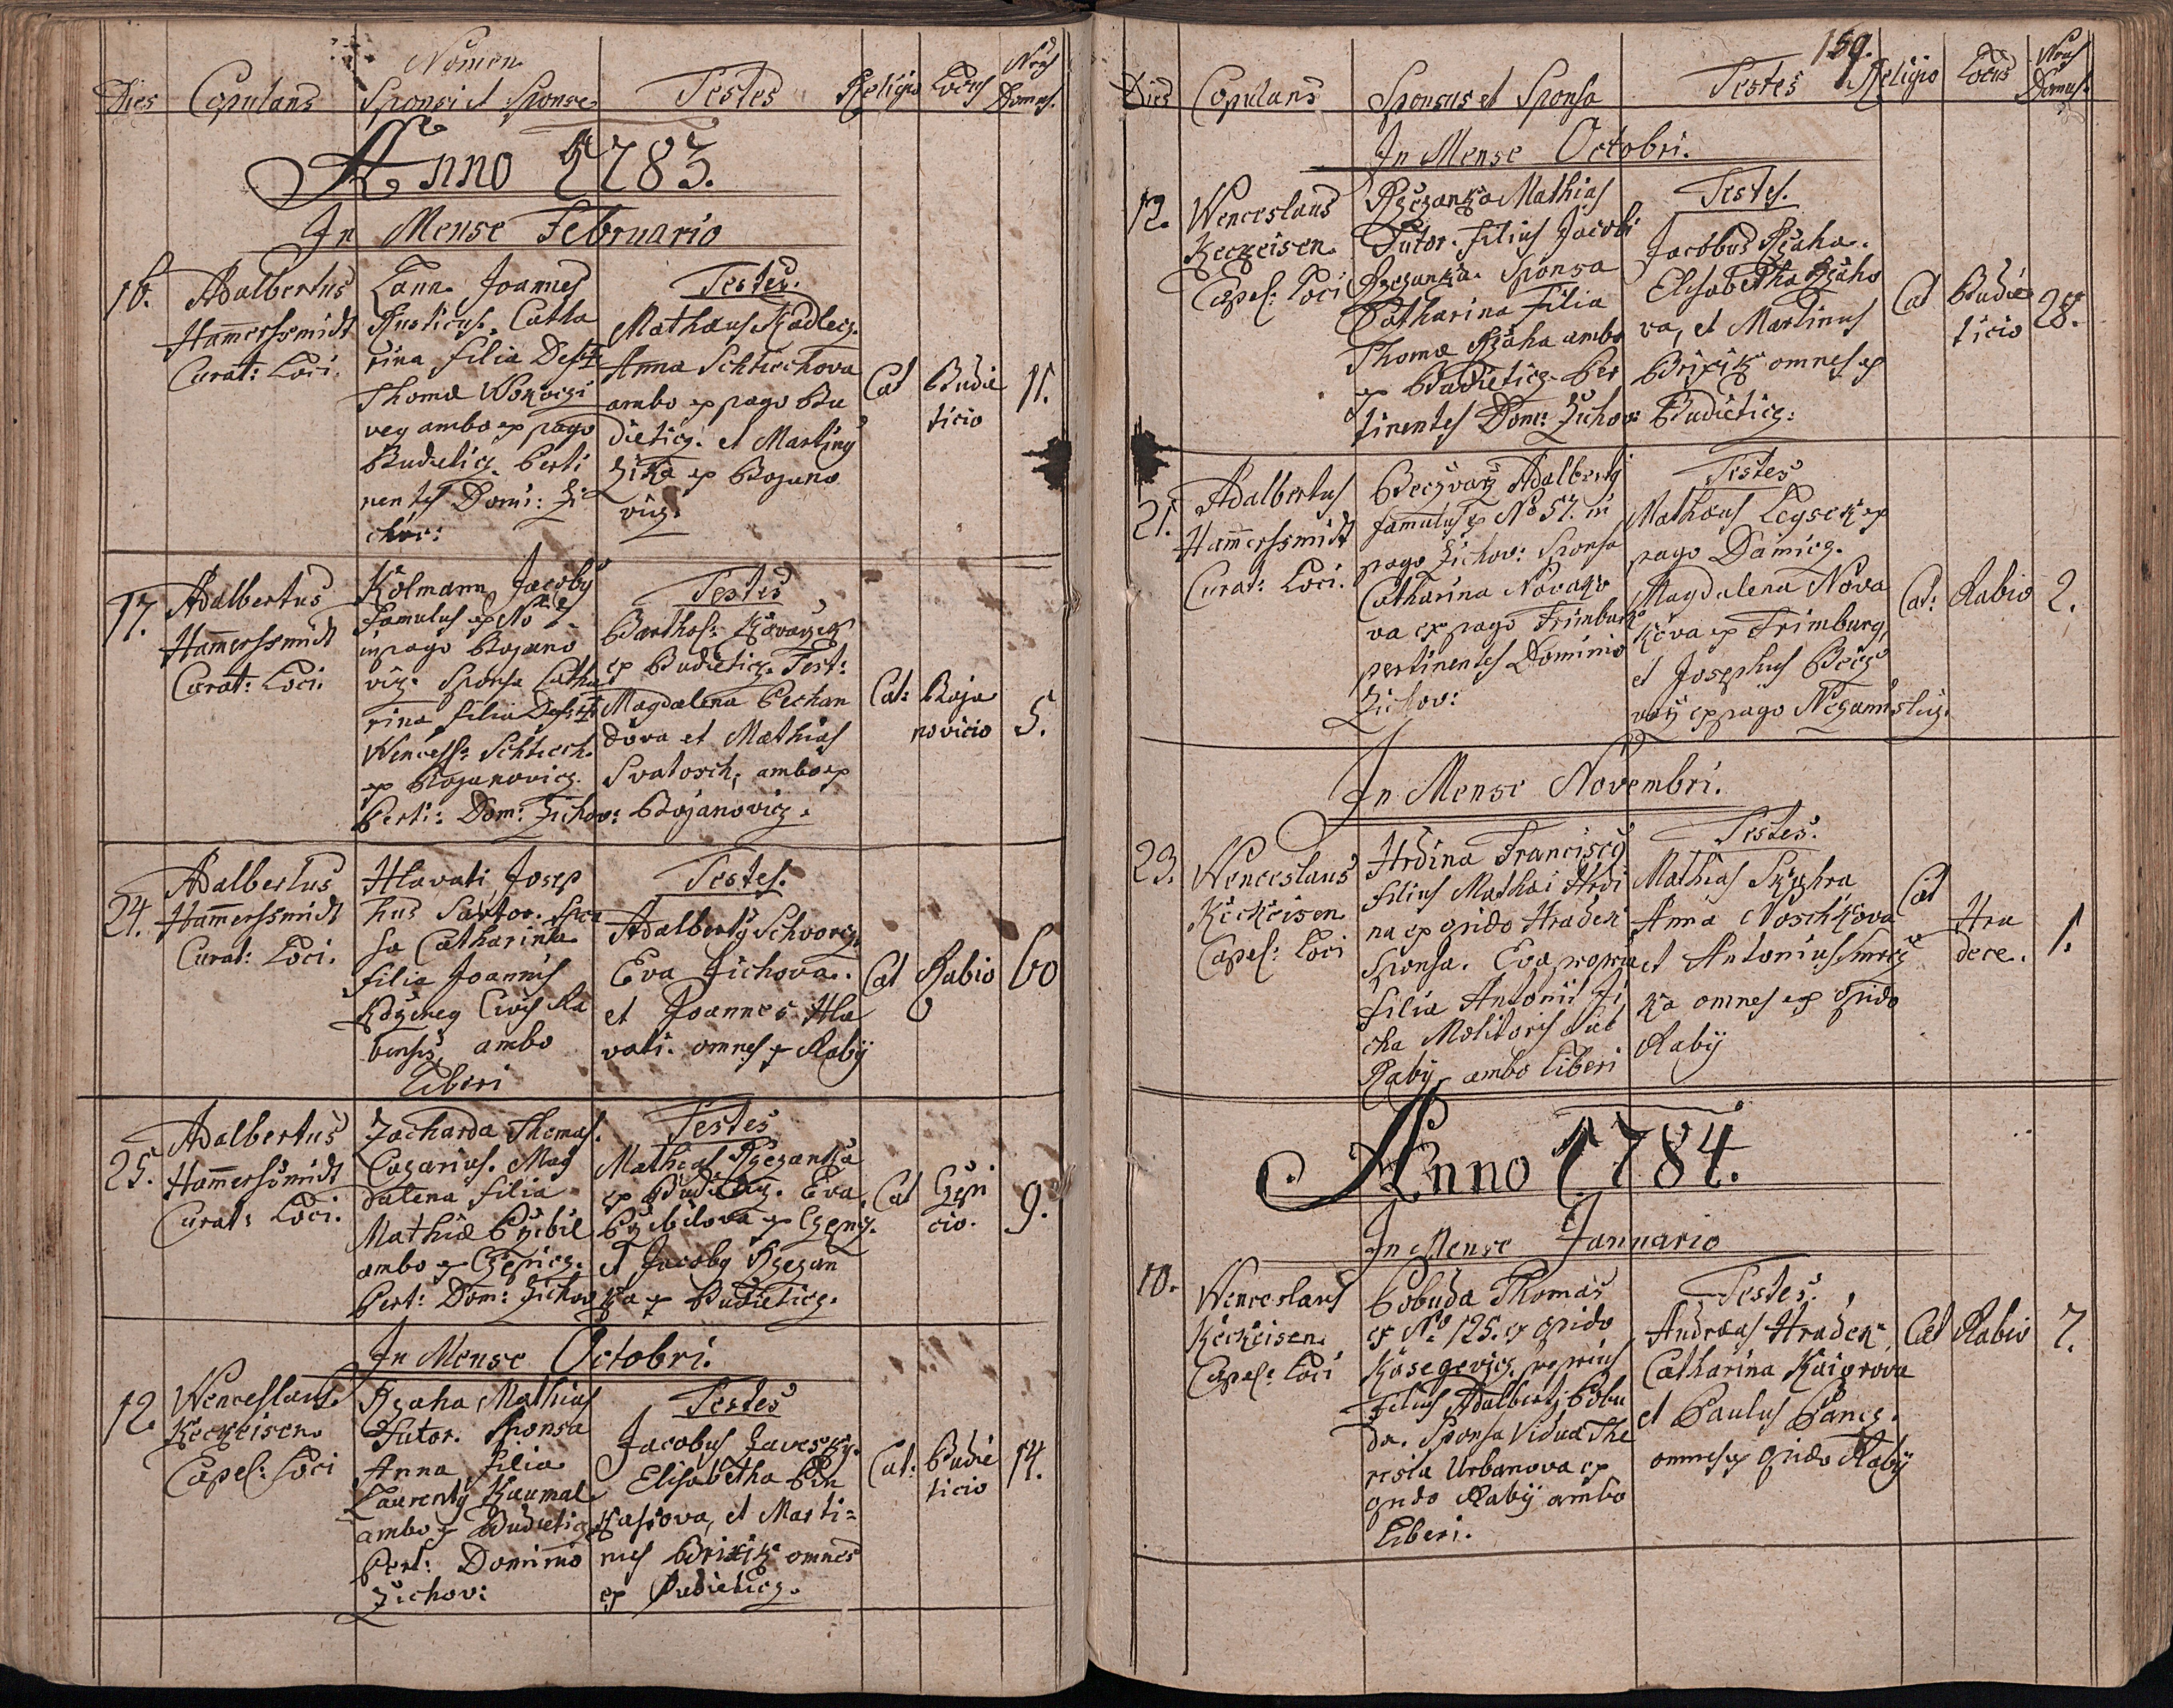 Nomen
Dies Copulans Sponsi et Sponse Testes Religio Locus Nrus Domus.
Anno 1783.
In Mense Februario
16.
Adalbertus
Hamerssmidt
Curat: Loci.
Lann Joannes
Rusticus. Catha
rina filia Def
Thomæ
vey ambo ex pago
Budieticz Perti
nentes Domi: Zi
chov:
Testes.
Mathæus Kadlecz.
Anna Schtiechova
ambo ex pago Bu
dieticz. et Martiny
Zika ex Bojano
vicz.
Cat
Budie
ticio
11.
17.
Adalbertus
Hamerssmidt
Curat: Loci.
Kolmann Jacoby
Famulus ex No 2
in pago Bojano
vicz. Sponsa Catha
rina filia Def
Wencesl: Schtiech
ex Bojanovicz.
Perti: Dom: Zichov:
Testes
Barthol: Kovarzik
ex Budieticz. Test:
Magdalena Pechan
dova et Mathias
Svatosch, ambo ex
Bojanovicz.
Cat:
Boja
novicio
5.
24.
Adalbertus
Hamerssmidt
Curat: Loci.
Hlavati Josep
hus Sartor. Spon
sa Catharina
filia Joannis
Civis Ra
bensis, ambo
Liberi
Testes.
Adalberty Schvorcz,
Eva Zichova.
et Joannes Hla
vati. omnes ex Raby
Cat
Rabio
60
25.
Adalbertus
Hamerssmidt
Curat: Loci.
Zacharda Thomas.
Casarius. Mag
dalena filia
Mathiæ Przibil
ambo ex Czepicz.
Pert: Dom: Zichov
Testes
Mathias Rzezanka
ex Budieticz. Eva
Przibilova ex Czepicz.
et Jacoby Rzezan
ka ex Budieticz.
Cat
Czepi
cio.
9.
In Mense Octobri.
12.
Wenceslaus
Keckeisen
Capel: Loci
Rzaha Mathias
Sutor. Sponsa
Anna filia
Laurenty Kaumal
ambo ex Budieticz
Pert: Dominio
Zichov:
Testes
Jacobus Zavesky.
Elisabetha Pin
kassova, et Marti=
nus Brixik omnes
ex Budieticz.
Cat:
Budie
ticio
14.
159.
Dies Copulans Sponsus et Sponsa Testes Religio Locus Nrus Domus.
In Mense Octobri.
12.
Wenceslaus
Keckeisen
Capel: Loci
Rzezanka Mathias
Sutor. filius Jacobi
Rzezanka. Sponsa
Catharina filia
Thomæ Rzaha ambo
ex Budieticz. Per
tinentes Dom: Zichov:
Testes.
Jacobus Rzaha.
Elisabetha Rzaho
va, et Martinus
Brixik omnes ex
Budieticz:
Cat
Budie
ticio
28.
21.
Adalbertus
Hamerssmidt
Curat: Loci.
Beczvarz Adalberty
famulus ex No 57. in
pago Zichov: Sponsa
Catharina Novako
va ex pago Trimburk
pertinentes Dominio
Zichov:
Testes
Mathæus Leysek ex
pago Damicz.
Magdalena Nova
kova ex Trimburg,
et Josephus Becz
varz ex pago Nezamislicz.
Cat:
Rabio
2.
In Mense Novembri.
23.
Wenceslaus
Keckeisen
Capel: Loci
Hrdina Franciscy
filius Mathæi Hrdi
na ex opido Hradek
Sponsa. Eva propria
filia Antonii Zi
cha Molitoris sub
Raby ambo liberi
Testes.
Mathias Skuhra
Anna Noschkova
et Antonius Smrcz
ka omnes ex opido
Raby
Cat
Hra
dece.
1.
Anno 1784.
In Mense Januario
10.
Wenceslaus
Keckeisen
Capel: Loci
Pobuda Thomas
ex No 125. ex opido
Kasegovicz proprius
filius Adalberti Pobu
da. Sponsa Vidua The
resia Urbanova ex
opido Raby ambo
Liberi.
Testes.
Andreas Hradek
Catharina Kaigrova
et Paulus Pancz.
omnes ex opido Raby
Cat
Rabio
7.